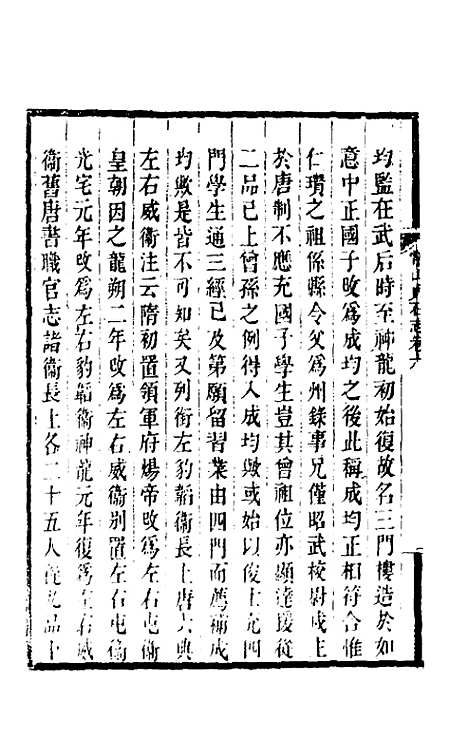 均監在武后時至神龍初始復故名三門樓造於如
意中正國子改爲成均之後此稱成均正相符合惟
仁瓚之祖係縣令父爲州錄事兄僅昭武校尉成上
於唐制不應充國子學生豈其曾祖位亦顯達援從
二品已上曾孫之例得入成均歟或始以俊士充四
門學生通三經已及第願留習業由四門而薦補成
均歟是皆不可知矣又列銜左豹韜衛長上唐六典
左右威衛注云隋初置領軍府煬帝改爲左右屯衛
皇朝因之龍朔二年改爲左右威衛別置左右屯衛
光宅元年改爲左右豹韜衛神龍元年復爲左右威
衛舊唐書職官志諸衛長上各二十五人從九品下